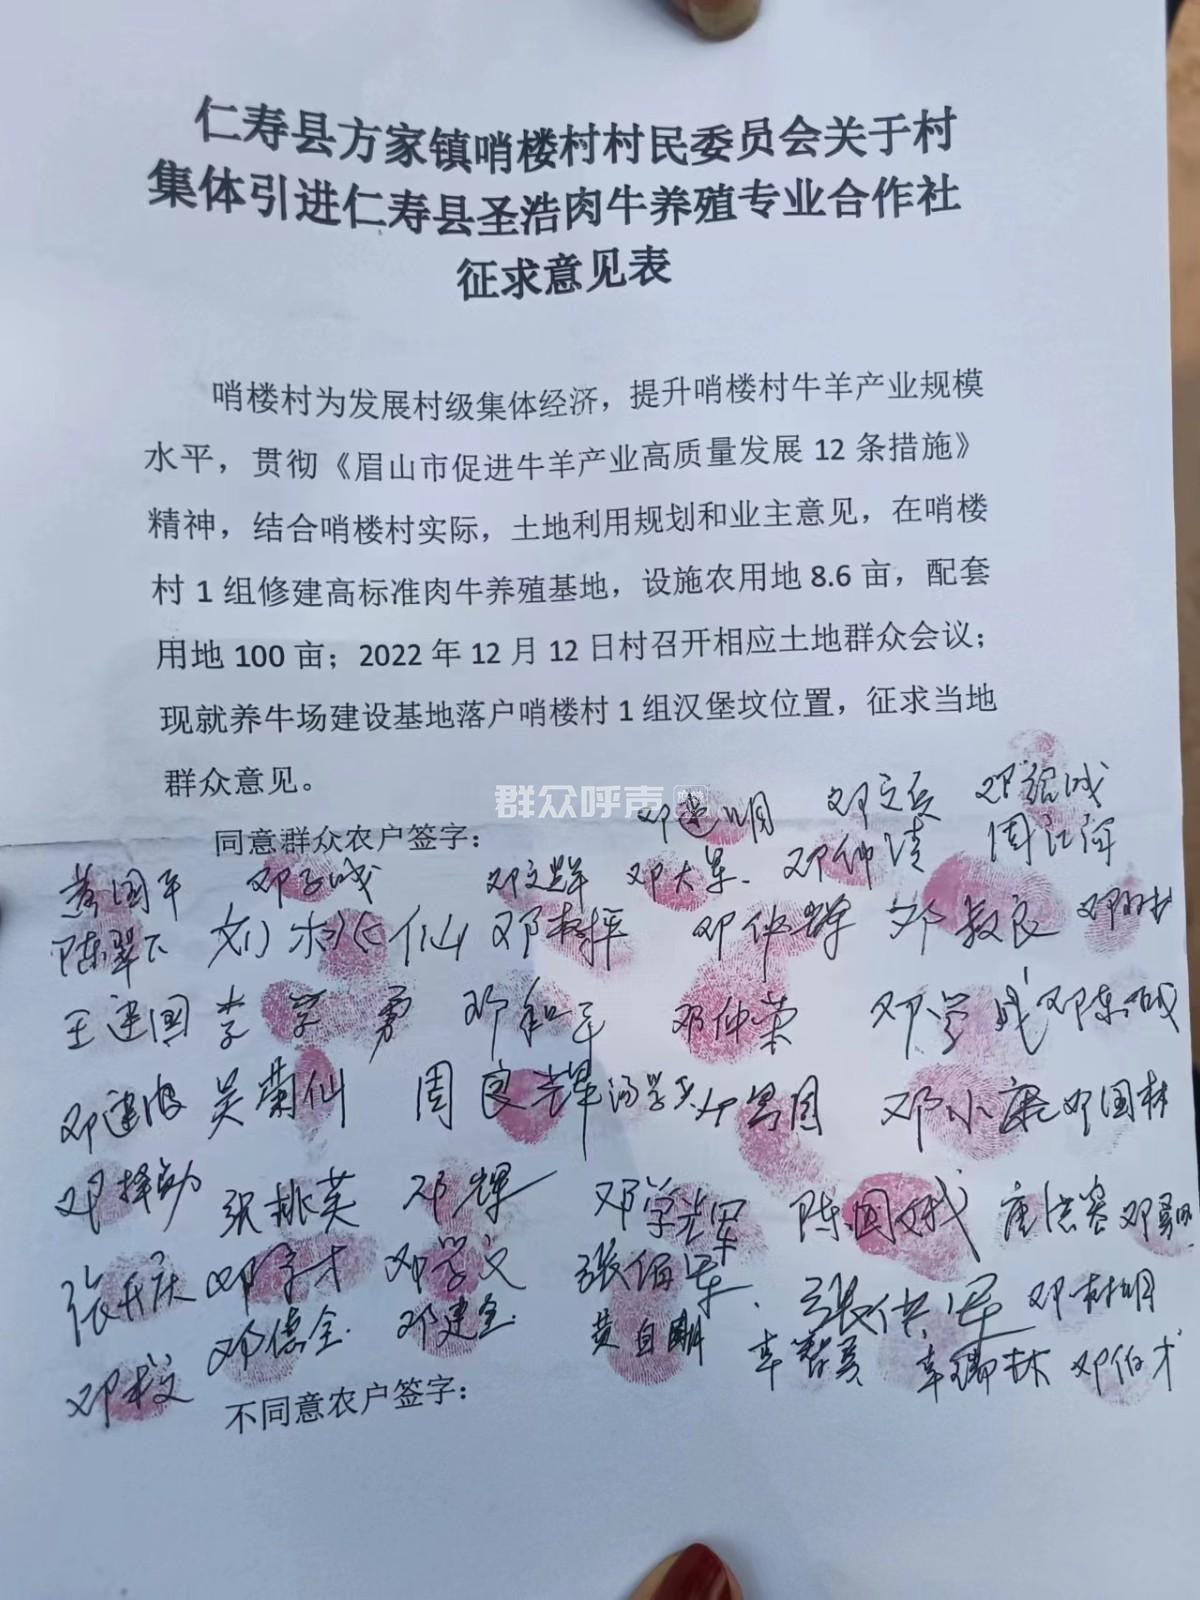 仁寿县方家镇哨楼村村民委员会关于村
集体引进仁寿县圣浩肉牛养殖专业合作社
征求意见表
哨楼村为发展村级集体经济，提升哨楼村牛羊产业规模
水平，贯彻《眉山市促进牛羊产业高质量发展12条措施》
精神，结合哨楼村实际，土地利用规划和业主意见，在哨楼
村1组修建高标准肉牛养殖基地，设施农用地8.6亩，配套
用地100亩；2022年12月12日村召开相应土地群众会议；
现就养牛场建设基地落户哨楼村1组汉堡坟位置，征求当地
群众意见。
群众呼声
同意群众农户签字：
邓建明 邓文兵
邓文辉 邓大军 邓仲清 周江河
陈翠 邓树坪 邓仲辉 邓教良
王建国 李学勇 邓和平 邓仲荣 邓学成
邓建波 吴菊仙 周良辉 邓小康 邓国林
邓择勋 张桃英 邓辉 邓学军 陈国成
张开庆 邓学才 邓学文 张伯军 张供军 邓树明
邓德全 邓建全 黄自明 辛智英 辛瑞林 邓伯才
邓成文
不同意农户签字：